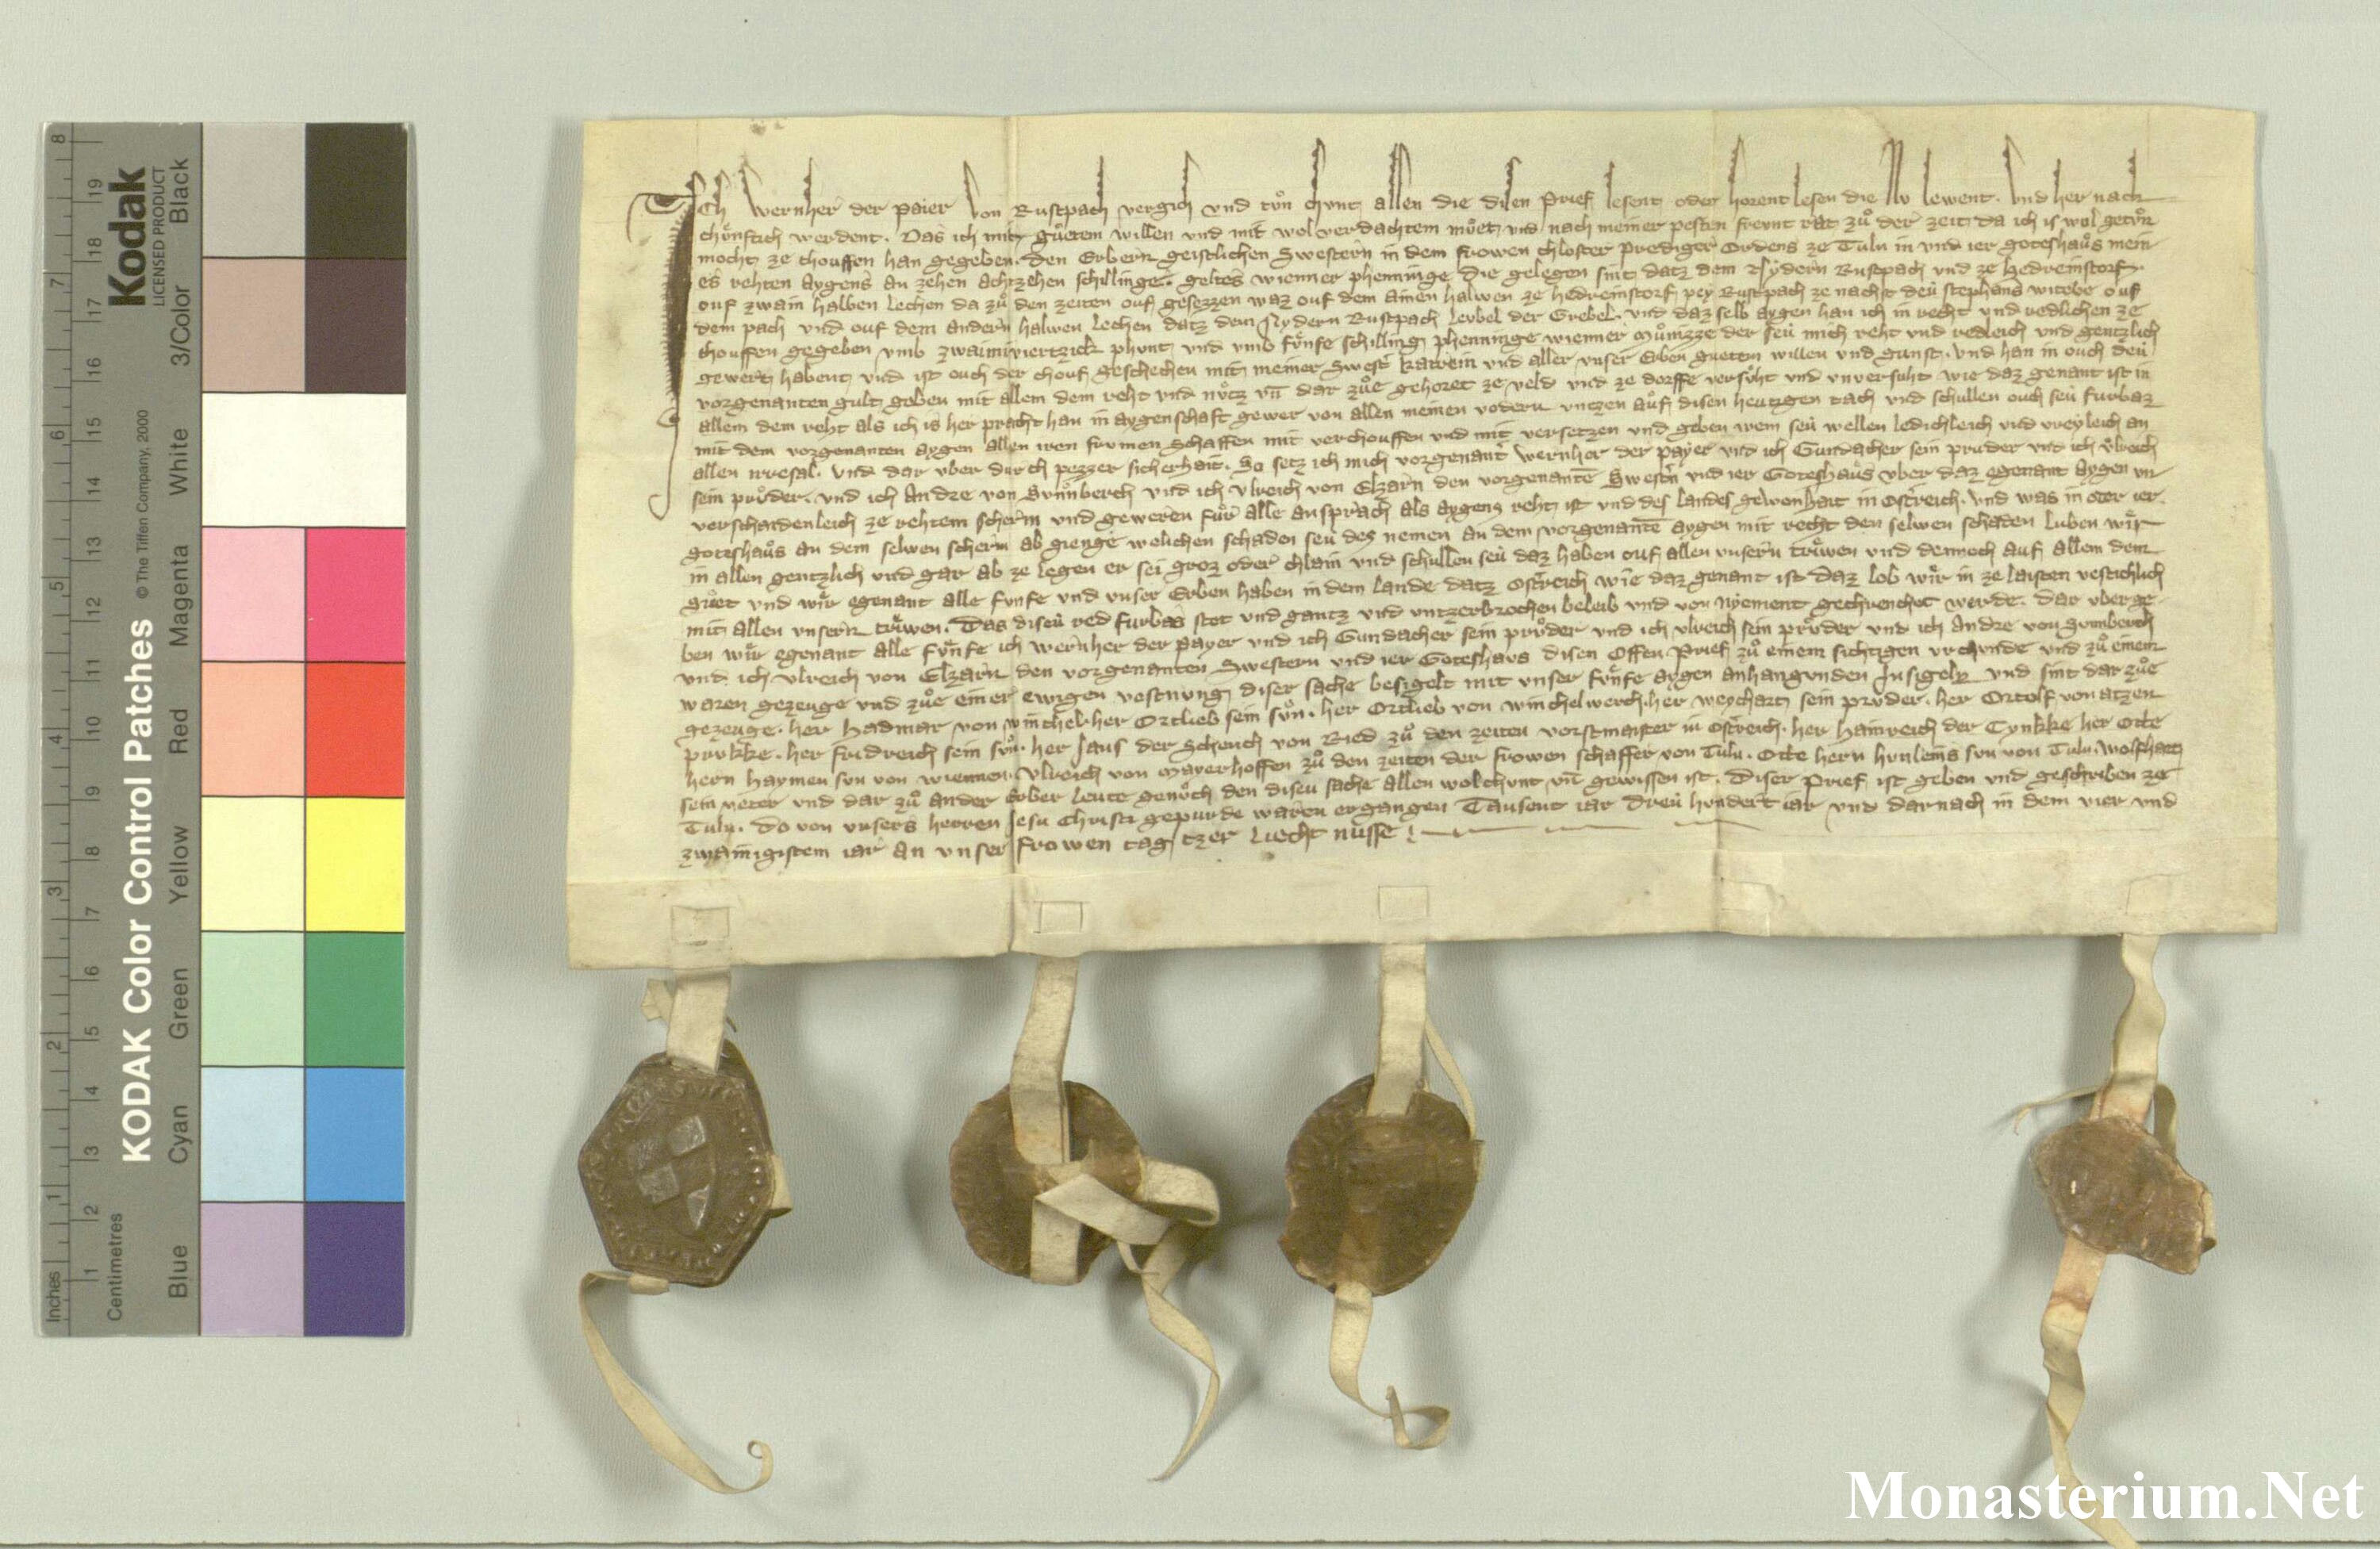 Ich Wernher der Paier von Rustpach vergich vnd tůn chvnt allen die disen Prief lesent oder horent lesen die nv lewent. Vnd her nach
chůnftich werdent. Das ich mit gůtem willen vnd mit wolverdachtem můet vnd nach meiner pesten frevnt rat zů der zeit da ich is wol getůn
mocht ze chouffen han gegeben. den Erbern geistlichen Swestern in dem frowen chloster Prediger Ordens ze Tuln in vnd ier goteshaůs mein
es rehten Aygens an zehen achtzehen schillinge geltes wienner phenninge die gelegen sint datz dem Nydern Rustpach vnd ze Hedreinstorf.
ouf zwain halben Lechen da zů den zeiten ouf gesezzen waz ouf dem ainen halwen ze hedreinstorf pey Rustpach ze nachst deů stephans witebe ouf
dem pach vnd ouf dem andern halwen Lechen datz dem Nydern Rustpach Levbel der Grebel. vnd daz selb aygen han ich in recht vnd redlichen ze
chouffen gegeben vmb zwaimiviertzick phvnt vnd vmb fůnfe schilling phenninge wienner můnizze der seu mich reht vnd redleich vnd gentzlich
gewert habent vnd ist ouch der chouf geschechen mit meiner Swest katrein vnd aller vnser Erben guetem willen vnd gunst. vnd han in ouch deu
vorgenanten gult geben mit allem dem reht vnd nůtz vn̄ dar zůe gehoret ze veld vnd ze dorffe versůht vnd vnversuht wie daz genant ist in
allem dem reht als ich is her pracht han in aygenschaft gewer von allen meinen vodern vntzen aůf disen heutigen tach vnd schullen ouch seu furbaz
mit dem vorgenanten aygen allen iren frvmen schaffen mit verchouffen vnd mit versetzen vnd geben wem seu wellen ledichleich vnd vreyleich an
allen irresal. Vnd dar vber durch pezzer sicherhait. So setz ich mich vorgenant Wernher der payer vnd ich Gundacher sein pruder vnd ich vlreich
sein průder. vnd ich Andre von Grůnberch vnd ich vlreich von Elzarn den vorgenantē Swestn vnd ier Goteshaůs vber daz egenant Aygen vn
verschaidenleich ze rehtem scherm vnd geweren fůr alle ansprach als aygens reht ist vnd des landes gewonhait in Ostreich. Vnd was in oder ier
goteshaůs an dem selwen scherm ab gienge welichen schaden seu des nemen an dem vorgenantē aygen mit recht den selwen schaden luben wir
in allen gentzlich vnd gar ab ze legen er sei groz oder chlain vnd schullen seu daz haben ouf allen vnsern trůwen vnd dennoch auf allem dem
gůet vnd wir egenant alle fvnfe vnd vnser Erben haben in dem lande datz Ostreich wie daz genant ist daz lob wir in ze laisten vestichlich
mit allen vnsern trůwen. Das diseu red furbas stet vnd gantz vnd vntzerbrochen beleib vnd von nyement gechrenchet werde. dar vber ge
ben wir egenant alle fůnfe ich wernher der Payer vnd ich Gundacher sein průder vnd ich vlreich sein průder vnd ich Andre von Grunberch
vnd ich vlreich von Elzarn den vorgenanten Swestern vnd ier Goteshavs disen offen Prief zů einem sichtigen vrchvnde vnd zů einem
waren gezeuge vnd zůe einer ewigen vestnvng diser sache besigelt mit vnser fůnfe aygen anhangvnden Insigeln vnd sint dar zůe
gezeuge. her Hadmar von winchel. her Ortlieb sein sůn. her Ortlieb von winchelwerch. her weychart sein prvder. her Ortolf von atzen
prvkke. her fridreich sein sůn. her Jans der Schench von Ried zů den zeiten vorstmaister in Ostreich. her Hainreich der Tynkke her Otte
hern haymen svn von wiennen. vlreich von Mayerhoffen zů den zeiten der frowen schaffer von Tuln. Otte hern hvnleins svn von Tuln. Wolfhart
sein veter vnd dar zů ander Erber leute genůch den diseu sache allen wolchvnt vn̄ gewissen ist. Diser Prief ist geben vnd geschriben ze
Tuln. Do von vnsers herren Jesu Christi gepurde waren ergangen Tausent iar dreu hvndert iar vnd darnach in dem vier vnd
zwainzigistem iar an vnser frowen tag tzer Liecht nusse
Kodak
LICENSED PRODUCT
KODAK Color Control Patches
© The Tiffen Company, 2000
Inches
1 2 3 4 5 6 7 8
Centimetres
1 2 3 4 5 6 7 8 9 10 11 12 13 14 15 16 17 18 19
Blue
Cyan
Green
Yellow
Red
Magenta
White
3/Color
Black
Monasterium.Net